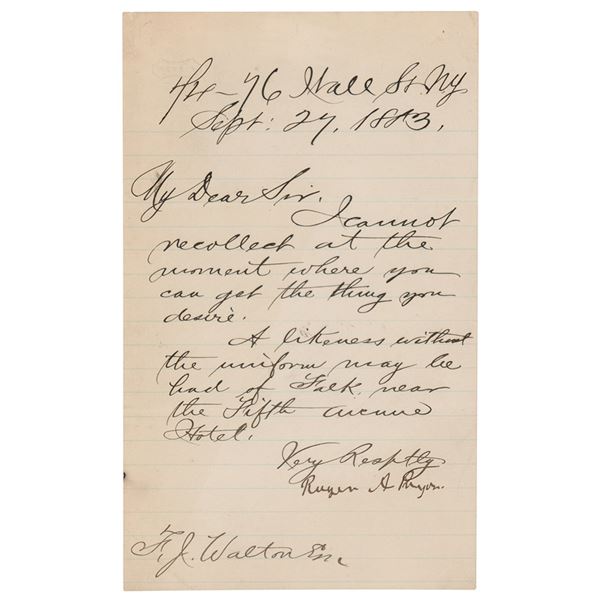 74-76 Wall St NY
Sept: 27, 1883,
My Dear Sir.
I cannot
recollect at the
moment where you
can get the thing you
desire.
A likeness without
the uniform may be
had of Falk, near
the Fifth avenue
Hotel.
Very Respptly
Roger A Pryor.
F. J. Walton Esq